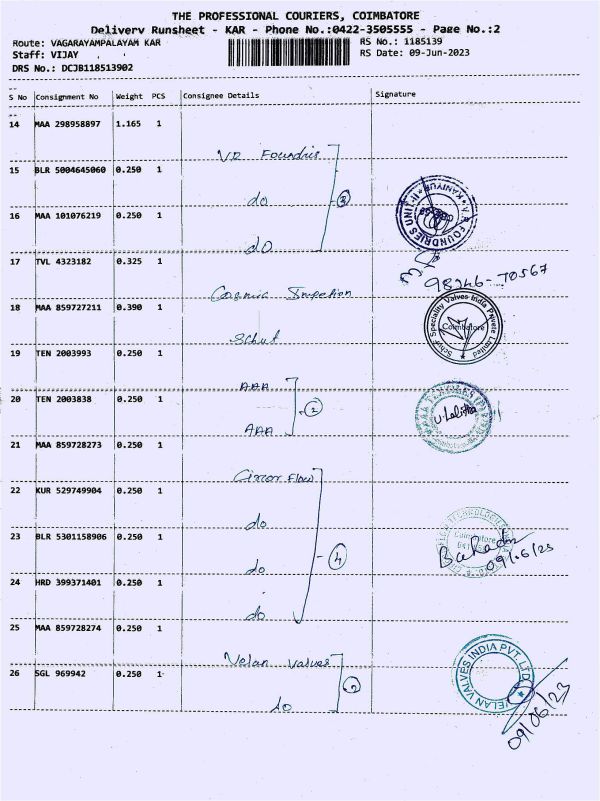 THE PROFESSIONAL COURIERS, COIMBATORE
Delivery Runsheet - KAR - Phone No.:0422-3505555 - Page No.:2
Route: VAGARAYAMPALAYAM KAR
RS No.: 1185139
Staff: VIJAY
RS Date: 09-Jun-2023
DRS No.: DCJB118513902
S No Consignment No Weight PCS Consignee Details Signature
14 MAA 298958897 1.165 1
VR Foundries
15 BLR 5004645060 0.250 1
do
3
16 MAA 101076219 0.250 1
do
V.R. FOUNDRIES UNIT-II KANIYUR
17 TVL 4323182 0.325 1
98246-70567
18 MAA 859727211 0.390 1
Schuf
Schuf Speciality Valves India Private Limited
Coimbatore
19 TEN 2003993 0.250 1
AAA
20 TEN 2003838 0.250 1
2
AAA
U. Lalitha
21 MAA 859728273 0.250 1
Circor Flow
22 KUR 529749904 0.250 1
do
23 BLR 5301158906 0.250 1
do
4
Coimbatore
09/06/23
24 HRD 399371401 0.250 1
do
25 MAA 859728274 0.250 1
Velan Valves
26 SGL 969942 0.250 1
2
do
VELAN VALVES INDIA PVT. LTD.
09/06/23